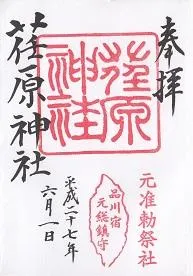 奉拝
荏原神社
荏原神社
平成二十七年
六月一日
元准勅祭社
品川宿
元総鎮守